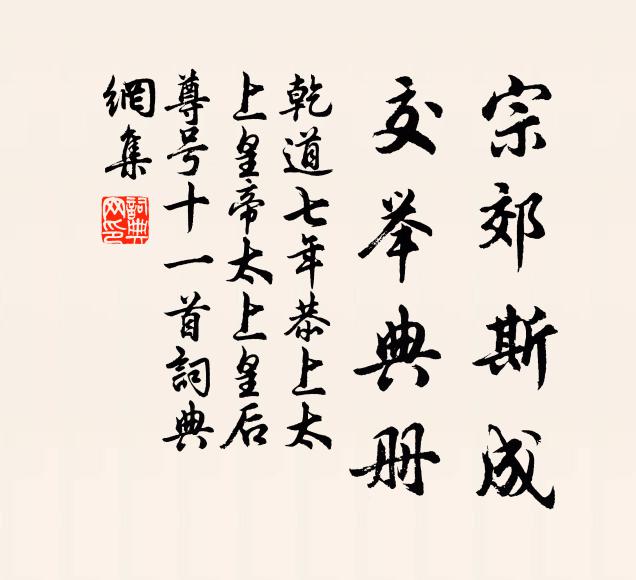 宗郊斯成
交举典册
乾道七年恭上太
上皇帝太上皇后
尊号十一首詞典
網集
詞典
网印